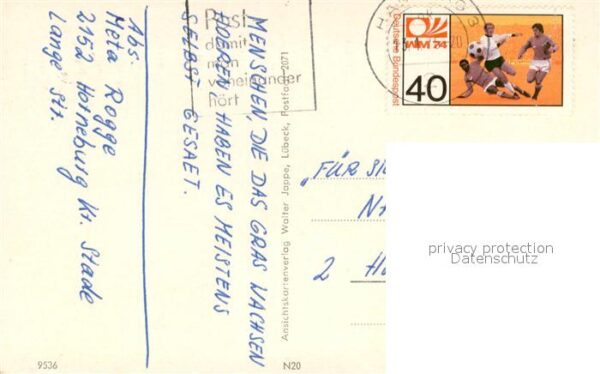 Abs.
Meta Rogge
2152 Horneburg Kr. Stade
Lange Str.
MENSCHEN, DIE DAS GRAS WACHSEN
HOEREN HABEN ES MEISTENS
SELBST GESAET.
Post
damit
man
voneinander
hört
Ansichtskartenverlag Walter Joppe, Lübeck, Postfach 2071
Deutsche Bundespost
WM 74
40
20
„FÜR
2
privacy protection
Datenschutz
9536
N20